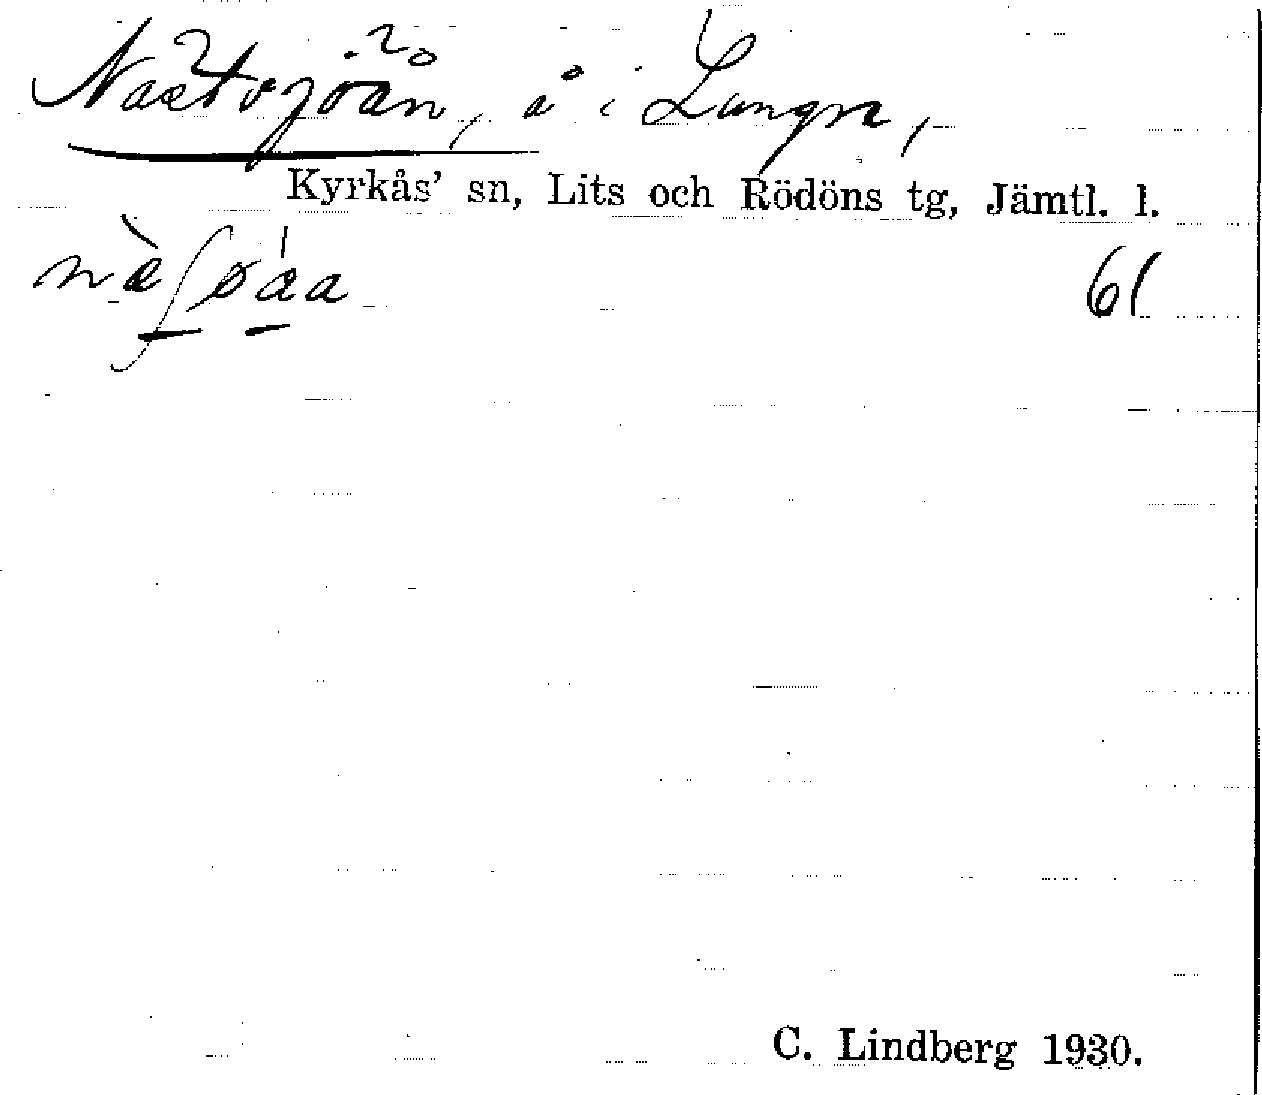 Nästsjöån, å i Lungre,
Kyrkås' sn, Lits och Rödöns tg, Jämtl. l.
61
C. Lindberg 1930.